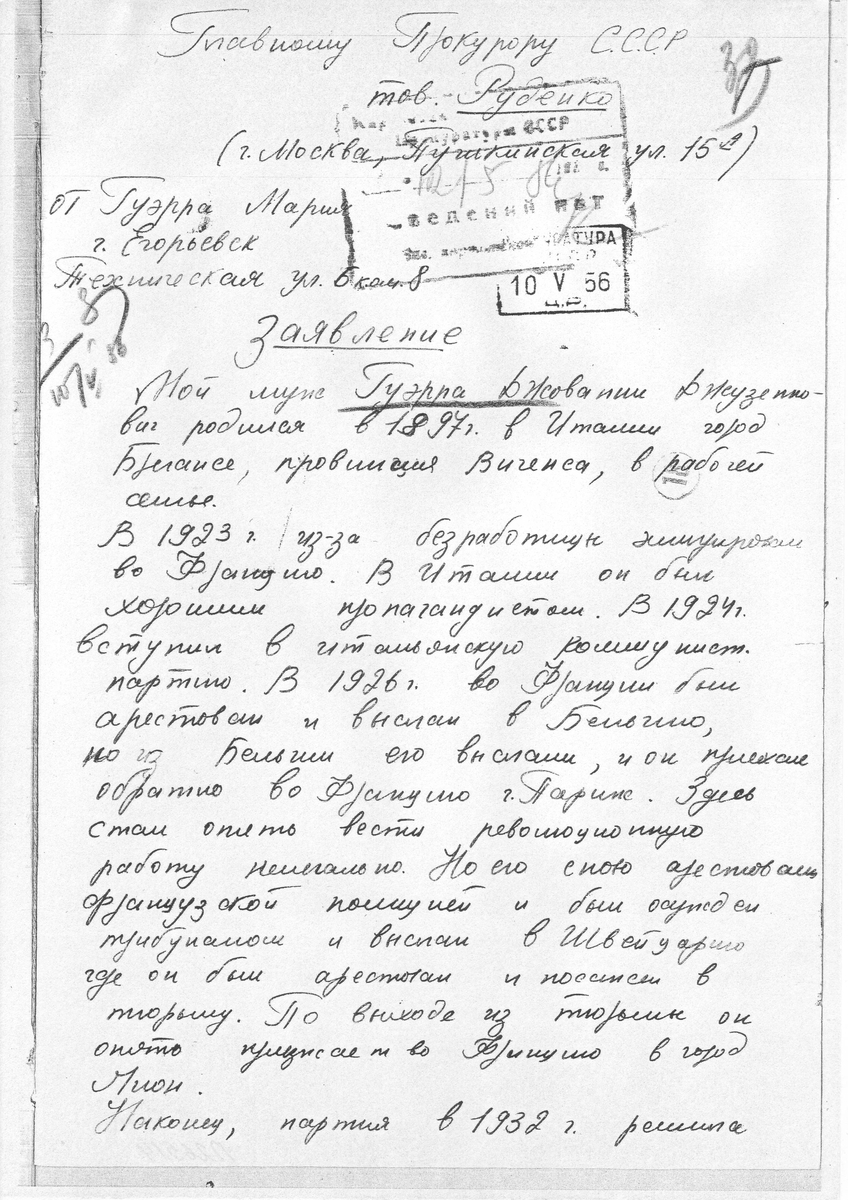 Главному Прокурору С.С.С.Р
тов. Руденко
Прокуратуры СССР
(г. Москва, Пушкинская ул. 15а)
от Гуэрра Мария
сведений нет
г. Егорьевск
Техническая ул. 6 ком. 8
10 V 56
Заявление
Мой муж Гуэрра Джованни Джузеппо-
вич родился в 1897г. в Италии город
провинция Виченса, в рабочей
семье.
В 1923 г. из-за безработицы эмигрировал
во Францию. В Италии он был
хорошим пропагандистом. В 1924г.
вступил в итальянскую коммунист.
партию. В 1926г. во Франции был
арестован и выслан в Бельгию,
но из Бельгии его выслали, и он приехал
обратно во Францию г. Париж. Здесь
стал опять вести революционную
работу нелегально. Но его снова арестовали
французской полицией и был осужден
трибуналом и выслан в Швейцарию
где он был арестован и посажен в
тюрьму. По выходе из тюрьмы он
опять приезжает во Францию в город
Лион.
Наконец, партия в 1932 г. решила